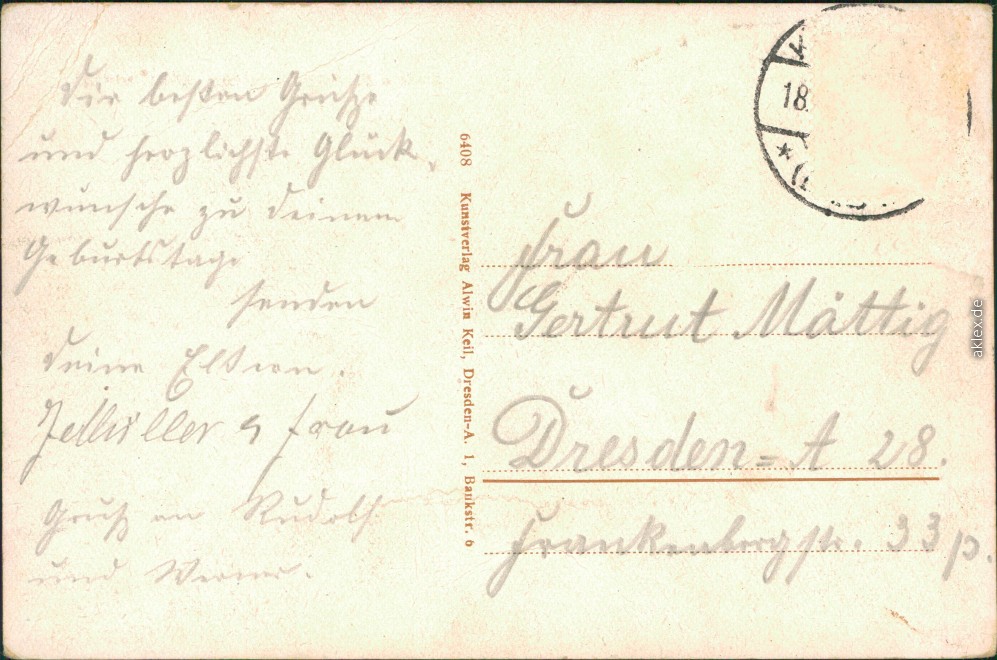 Die besten Grüße
und herzlichste Glück-
wünsche zu deinem
Geburtstage
senden
deine Eltern.
Müller u Frau
Gruß an Rudolf
und Werner.
6408 Kunstverlag Alwin Keil, Dresden-A. 1, Bankstr. 6
18.
Frau
Gertrut Mättig
Dresden=A 28.
Frankenbergstr. 33 p.
aklex.de